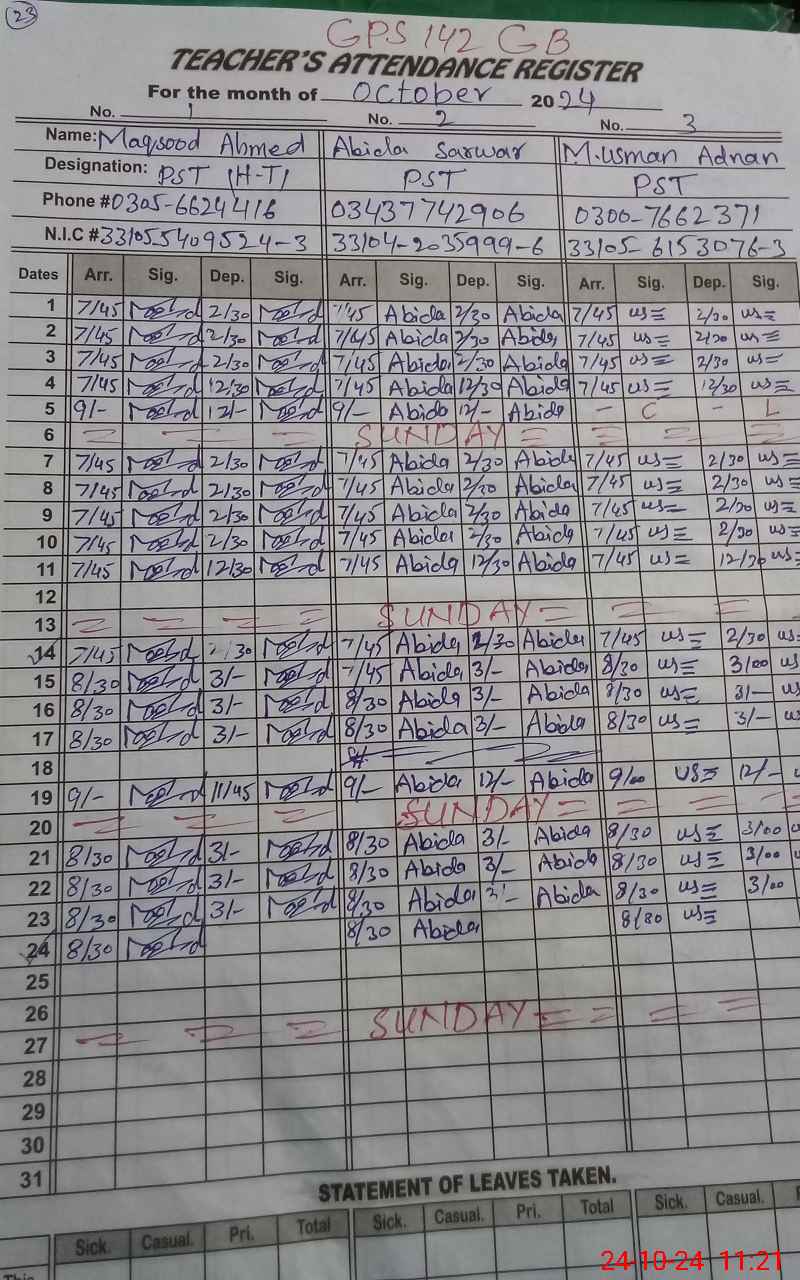 23
GPS 142 GB
TEACHER'S ATTENDANCE REGISTER
For the month of October 2024
No. 1 No. 2 No. 3
Name: Maqsood Ahmed Abida Sarwar M.Usman Adnan
Designation: PST (H-T) PST PST
Phone # 0305-6624416 03437742906 0300-7662371
N.I.C # 33105-5409524-3 33104-2035999-6 33105-6153076-3
Dates Arr. Sig. Dep. Sig. Arr. Sig. Dep. Sig. Arr. Sig. Dep. Sig.
1 7/45 2/30 7/45 Abida 2/30 Abida 7/45 us 2/30 us
2 7/45 2/30 7/45 Abida 2/30 Abida 7/45 us 2/30 us
3 7/45 2/30 7/45 Abida 2/30 Abida 7/45 us 2/30 us
4 7/45 12/30 7/45 Abida 12/30 Abida 7/45 us 12/30 us
5 9/- 12/- 9/- Abida 12/- Abida - C - L
6 SUNDAY
7 7/45 2/30 7/45 Abida 2/30 Abida 7/45 us 2/30 us
8 7/45 2/30 7/45 Abida 2/30 Abida 7/45 us 2/30 us
9 7/45 2/30 7/45 Abida 2/30 Abida 7/45 us 2/30 us
10 7/45 2/30 7/45 Abida 2/30 Abida 7/45 us 2/30 us
11 7/45 12/30 7/45 Abida 12/30 Abida 7/45 us 12/30 us
12
13 SUNDAY
14 7/45 2/30 7/45 Abida 2/30 Abida 7/45 us 2/30 us
15 8/30 3/- 7/45 Abida 3/- Abida 8/30 us 3/00 us
16 8/30 3/- 8/30 Abida 3/- Abida 8/30 us 3/- us
17 8/30 3/- 8/30 Abida 3/- Abida 8/30 us 3/- us
18
19 9/- 11/45 9/- Abida 12/- Abida 9/00 us 12/-
20 SUNDAY
21 8/30 3/- 8/30 Abida 3/- Abida 8/30 us 3/00
22 8/30 3/- 8/30 Abida 3/- Abida 8/30 us 3/00
23 8/30 3/- 8/30 Abida 3/- Abida 8/30 us 3/00
24 8/30 8/30 Abida 8/30 us
25
26
27 SUNDAY
28
29
30
31
STATEMENT OF LEAVES TAKEN.
Sick. Casual. Pri. Total Sick. Casual. Pri. Total Sick. Casual.
This
24-10-24 11:21